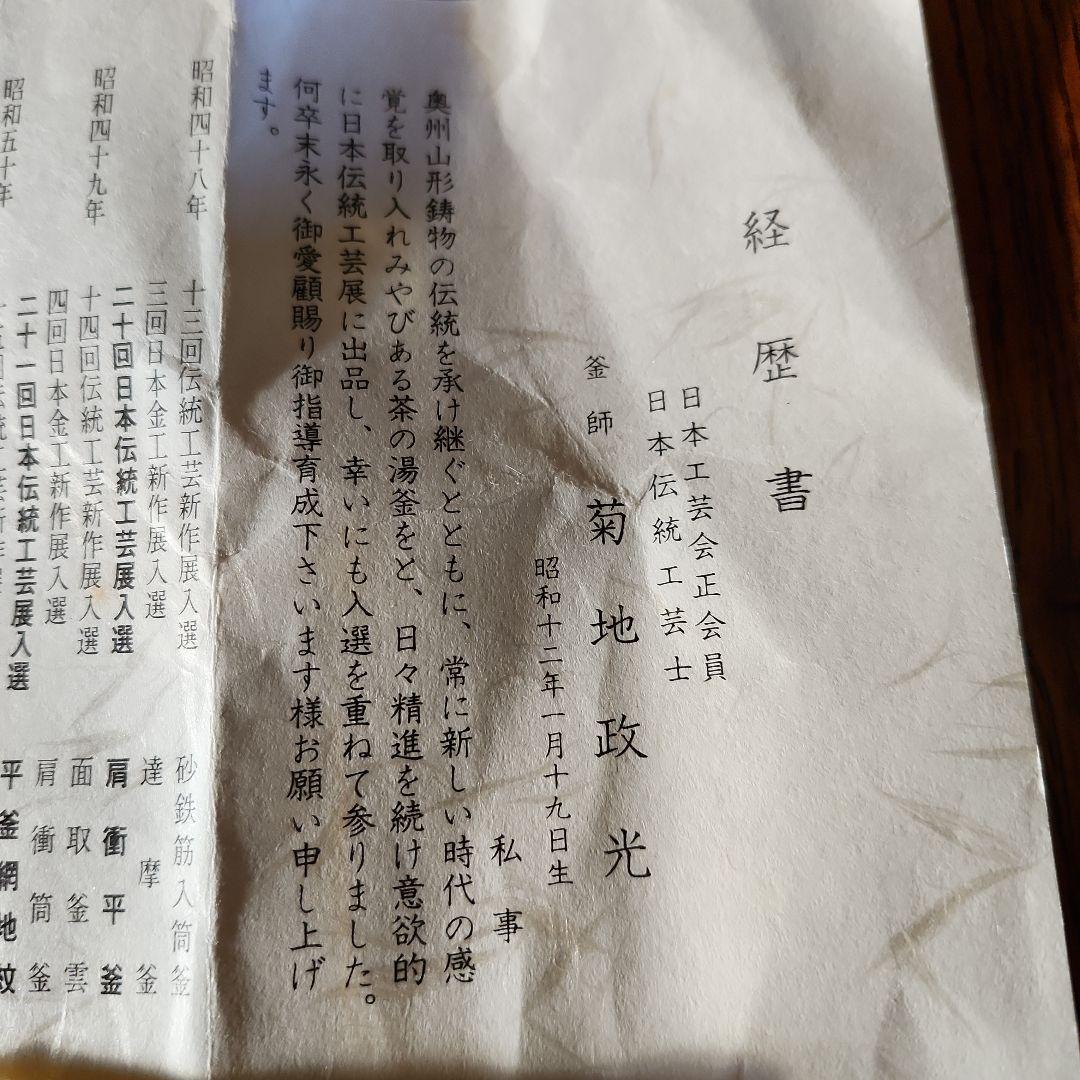 経歴書
日本工芸会正会員
日本伝統工芸士
釜師 菊地政光
昭和十二年一月十九日生
私事
奥州山形鋳物の伝統を承け継ぐとともに、常に新しい時代の感
覚を取り入れみやびある茶の湯釜をと、日々精進を続け意欲的
に日本伝統工芸展に出品し、幸いにも入選を重ねて参りました。
何卒末永く御愛顧賜り御指導育成下さいます様お願い申し上げ
ます。
昭和四十八年 十三回伝統工芸新作展入選 砂鉄筋入筒釜
三回日本金工新作展入選 達摩釜
二十回日本伝統工芸展入選 肩衝平釜
昭和四十九年 十四回伝統工芸新作展入選 面取釜雲
四回日本金工新作展入選 肩衝筒釜
二十一回日本伝統工芸展入選 平釜網地紋
昭和五十年